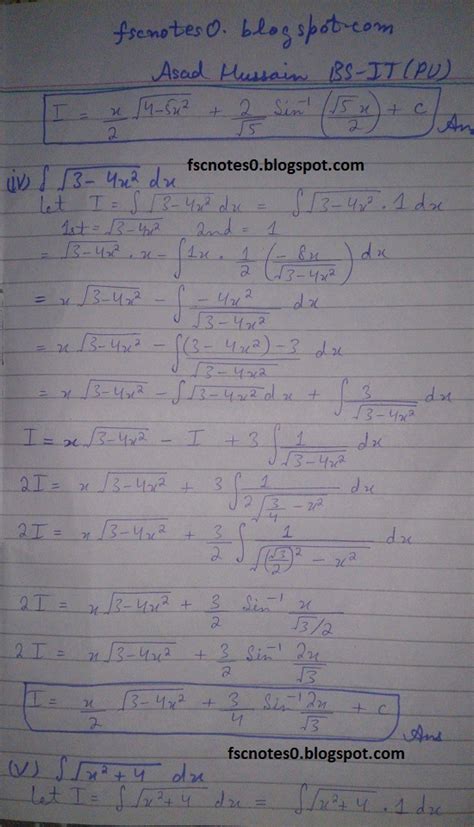 fscnotes0.blogspot.com
Asad Hussain BS-IT(PU)
I = x/2 √(4-5x²) + 2/√5 Sin⁻¹ (√5x/2) + c Ans
fscnotes0.blogspot.com
(iv) ∫ √(3-4x²) dx
Let I = ∫ √(3-4x²) dx = ∫ √(3-4x²) · 1 dx
1st = √(3-4x²) 2nd = 1
= √(3-4x²) · x - ∫ 1x · 1/2 (-8x/√(3-4x²)) dx
= x √(3-4x²) - ∫ -4x²/√(3-4x²) dx
= x √(3-4x²) - ∫ (3-4x²)-3/√(3-4x²) dx
= x √(3-4x²) - ∫ √(3-4x²) dx + ∫ 3/√(3-4x²) dx
I = x √(3-4x²) - I + 3 ∫ 1/√(3-4x²) dx
2I = x √(3-4x²) + 3 ∫ 1/2√(3/4 - x²) dx
2I = x √(3-4x²) + 3/2 ∫ 1/√((√3/2)² - x²) dx
2I = x √(3-4x²) + 3/2 Sin⁻¹ x/√3/2
2I = x √(3-4x²) + 3/2 Sin⁻¹ 2x/√3
I = x/2 √(3-4x²) + 3/4 Sin⁻¹ 2x/√3 + c Ans
fscnotes0.blogspot.com
(v) ∫ √(x²+4) dx
Let I = ∫ √(x²+4) dx = ∫ √(x²+4) · 1 dx